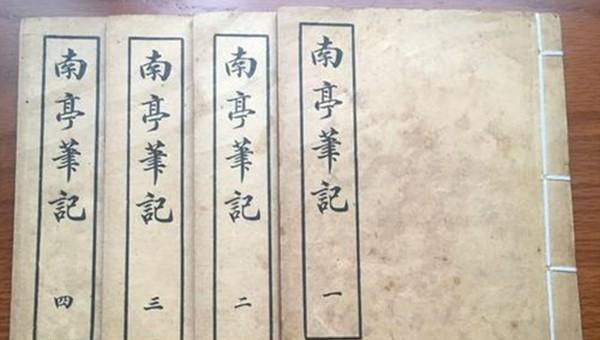 南亭筆記 一
南亭筆記 二
南亭筆記 三
南亭筆記 四